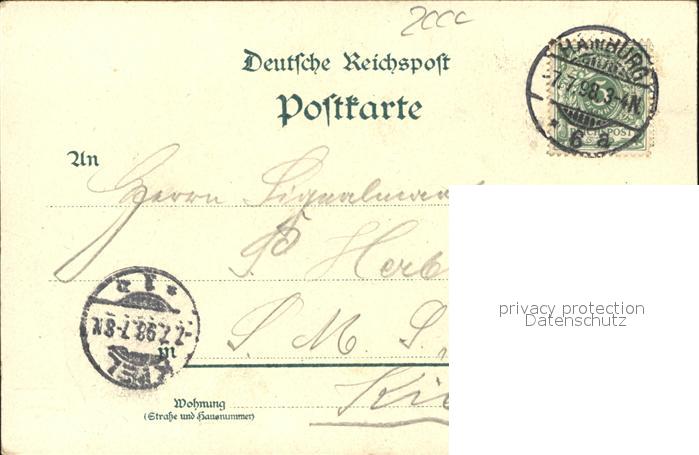 2000
Deutsche Reichspost
Postkarte
HAMBURG
7.7.98.3-4N.
* 6 a
REICHSPOST
An
Herrn Signalmaa
Herb
S. M. S.
in
KIEL
7.7.98.7-8N.
Ki
Wohnung
(Straße und Hausnummer)
privacy protection
Datenschutz